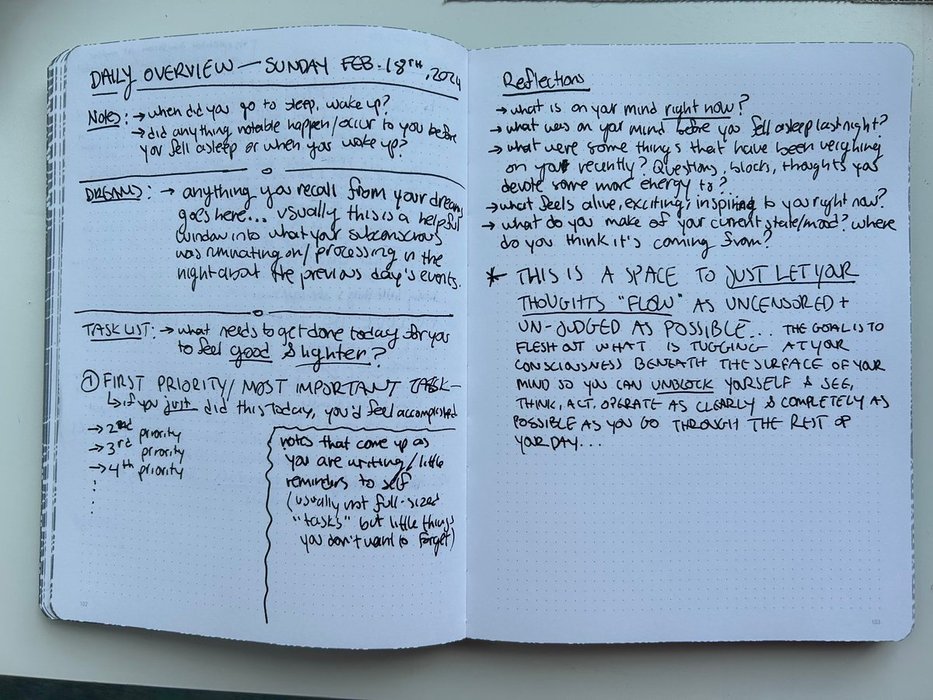 DAILY OVERVIEW — SUNDAY FEB. 18TH, 2024
Notes: → when did you go to sleep, wake up?
→ did any thing notable happen/occur to you before
you fell asleep or when you woke up?
DREAMS: → anything you recall from your dreams
goes here... usually this is a helpful
window into what your subconscious
was ruminating on/processing in the
night about the previous day's events.
TASK LIST: → what needs to get done today for you
to feel good & lighter?
① FIRST PRIORITY/MOST IMPORTANT TASK —
↳ if you just did this today, you'd feel accomplished
→ 2nd priority
→ 3rd priority
→ 4th priority
notes that come up as
you are writing/little
reminders to self
(usually not full-sized
"tasks" but little things
you don't want to forget)
102
Reflections
→ what is on your mind right now?
→ what was on your mind before you fell asleep last night?
→ what were some things that have been weighing
on you recently? Questions, blocks, thoughts you
devote some more energy to?
→ what feels alive, exciting, inspiring to you right now?
→ what do you make of your current state/mood? where
do you think it's coming from?
* THIS IS A SPACE TO JUST LET YOUR
THOUGHTS "FLOW" AS UNCENSORED +
UN-JUDGED AS POSSIBLE... THE GOAL IS TO
FLESH OUT WHAT IS TUGGING AT YOUR
CONSCIOUSNESS BENEATH THE SURFACE OF YOUR
MIND SO YOU CAN UNBLOCK YOURSELF & SEE,
THINK, ACT, OPERATE AS CLEARLY & COMPLETELY AS
POSSIBLE AS YOU GO THROUGH THE REST OF
YOUR DAY...
103